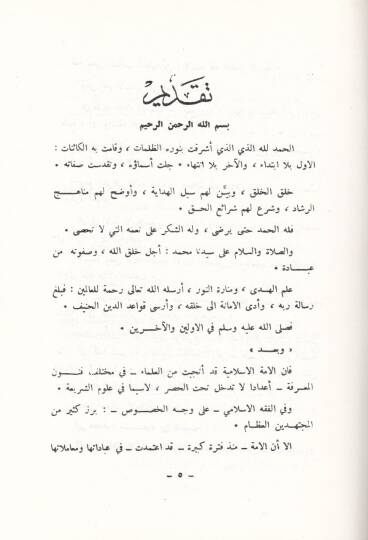 تقديم
بسم الله الرحمن الرحيم
الحمد لله الذي الذي أشرقت بنوره الظلمات ، وقامت به الكائنات :
الاول بلا ابتداء ، والآخر بلا انتهاء • جلت أسماؤه ، وتقدست صفاته •
خلق الخلق ، وبيَّن لهم سبل الهداية ، وأوضح لهم مناهج
الرشاد ، وشرع لهم شرائع الحق •
فله الحمد حتى يرضى ، وله الشكر على نعمه التي لا تحصى •
والصلاة والسلام على سيدنا محمد : أجل خلق الله ، وصفوته من
عبادة •
علم الهدى ، ومنارة النور ، أرسله الله تعالى رحمة للعالمين : فبلغ
رسالة ربه ، وأدى الامانة الى خلقه ، وأرسى قواعد الدين الحنيف •
فصلى الله عليه وسلم في الاولين والآخرين •
« وبعد »
فان الامة الاسلامية قد أنجبت من العلماء ـ في مختلف فنون
المعرفة ـ أعدادا لا تدخل تحت الحصر ، لاسيما في علوم الشريعة •
وفي الفقه الاسلامي ـ على وجه الخصوص ـ : برز كثير من
المجتهدين العظام •
الا أن الامة ـ منذ فترة كبيرة ـ قد اعتمدت ـ في عباداتها ومعاملاتها
ـ ٥ ـ